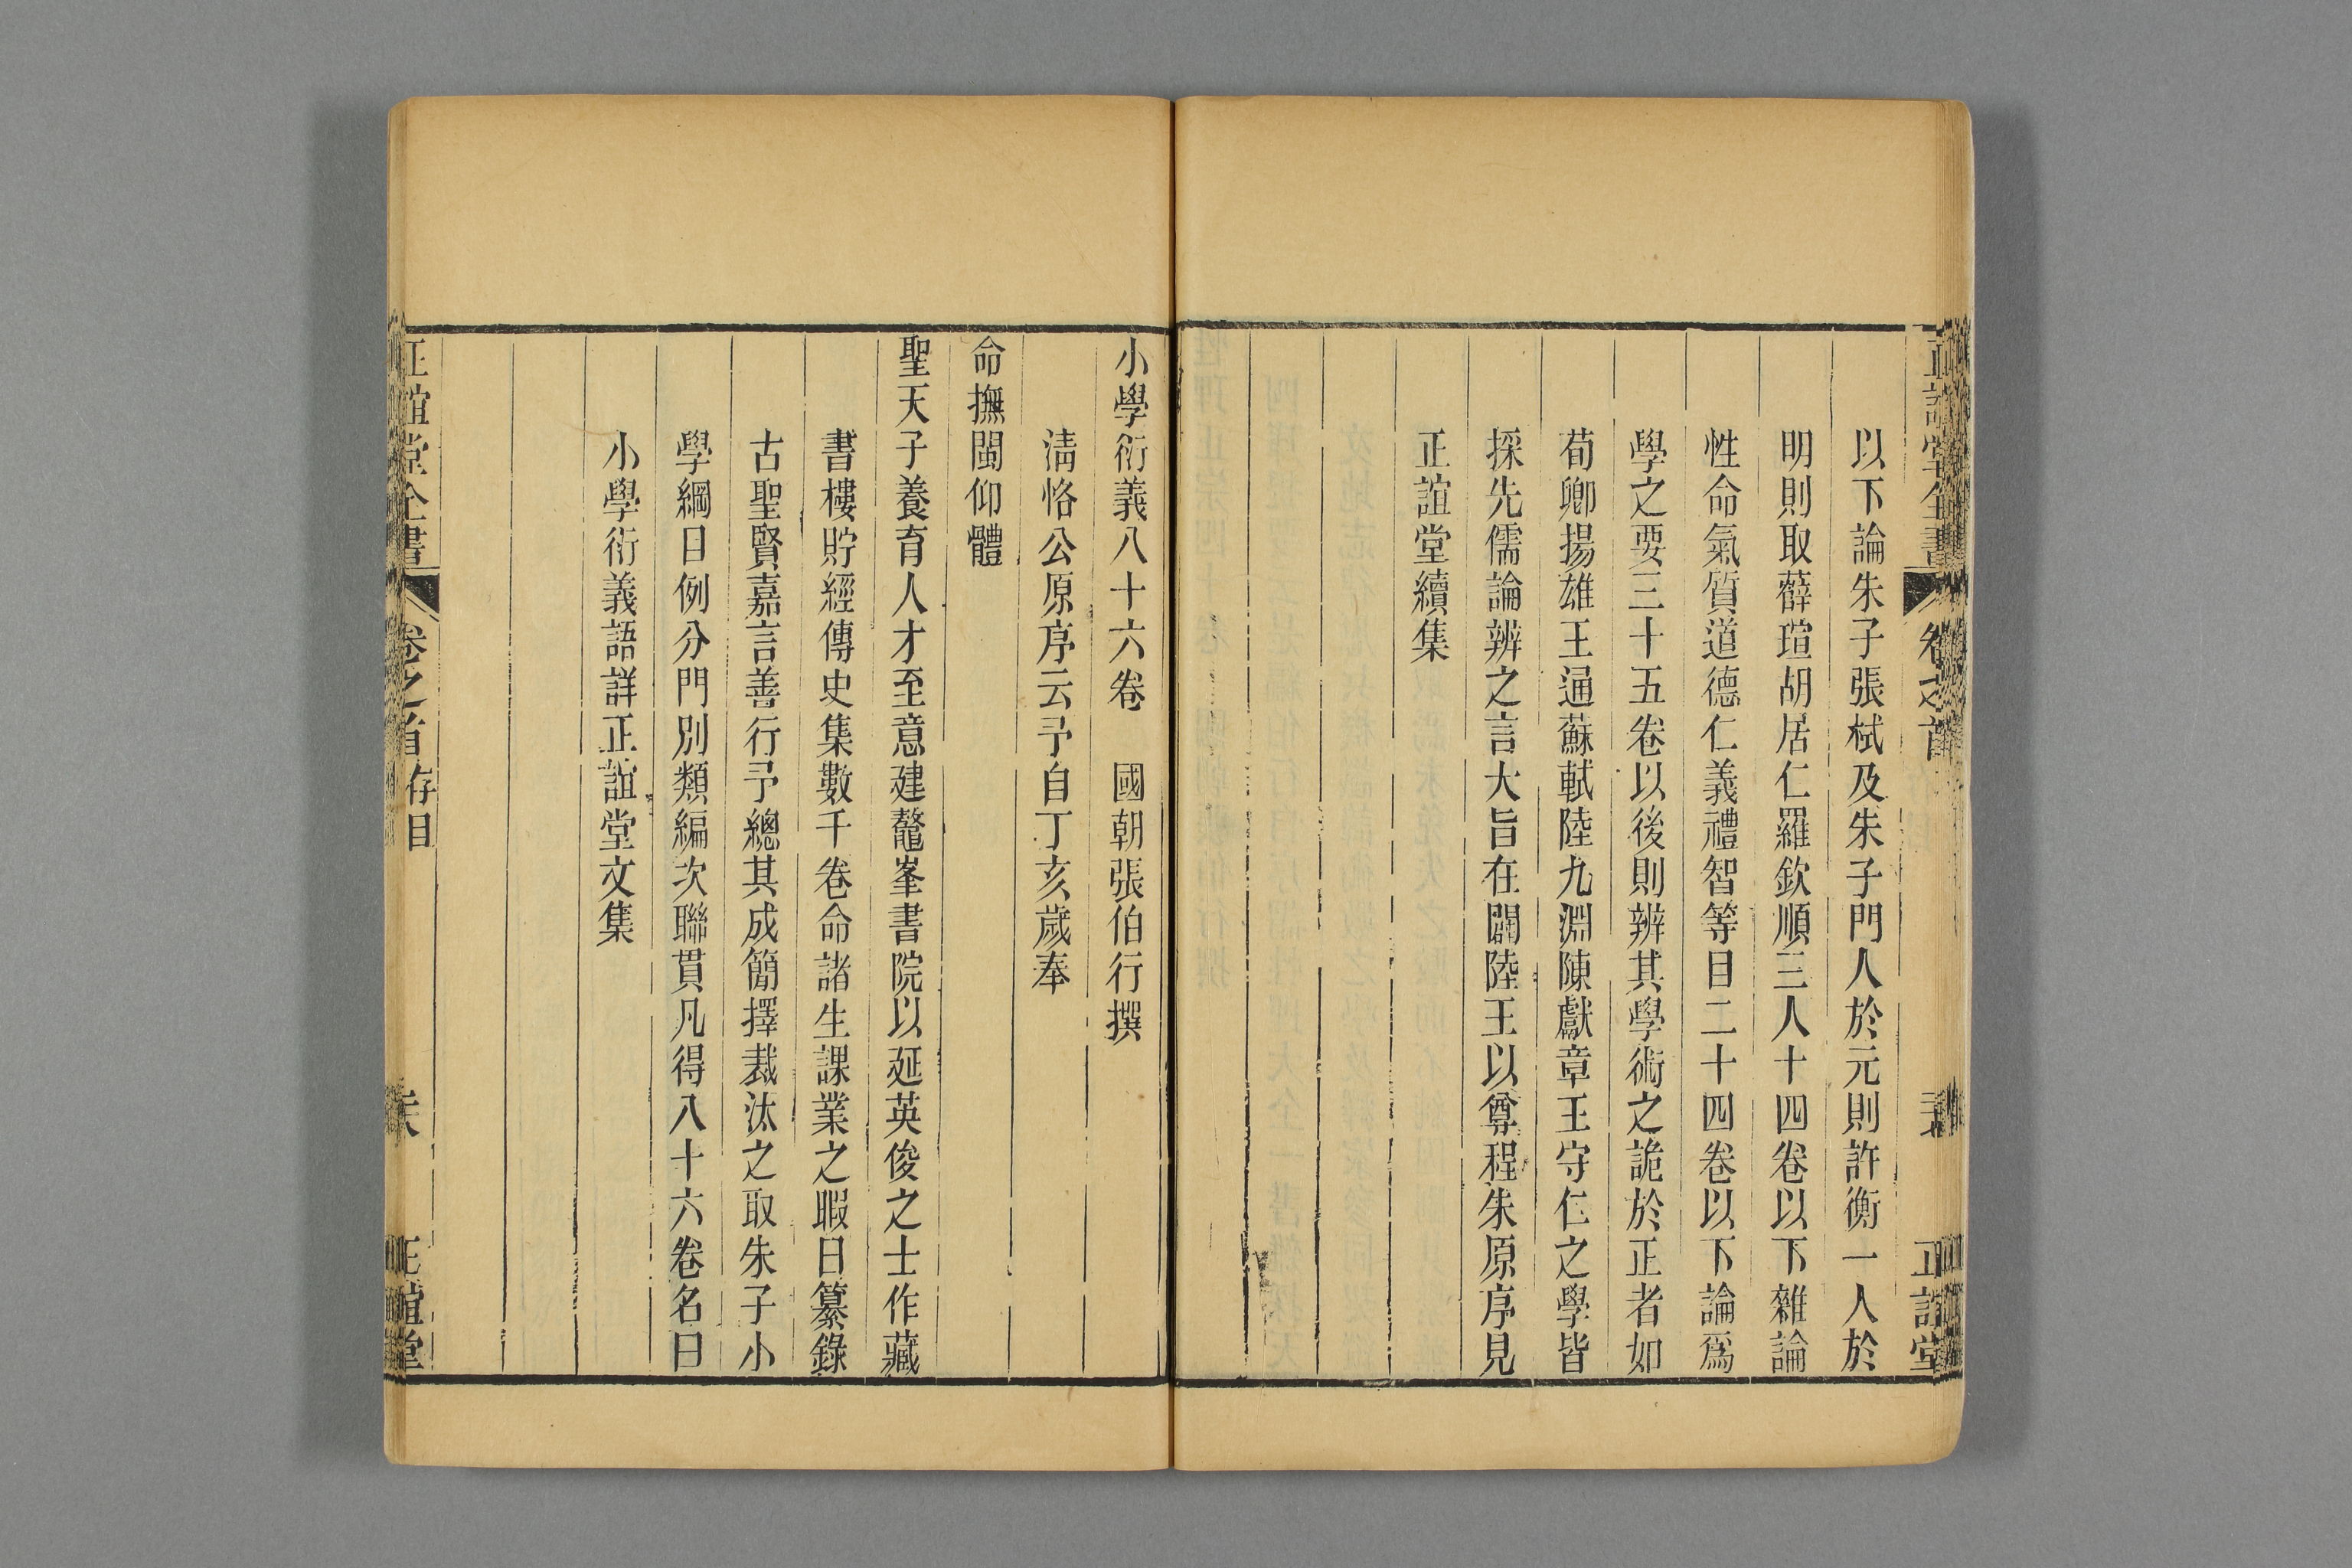 正誼堂全書 卷之首 正誼堂
以下論朱子張栻及朱子門人於元則許衡一人於
明則取薛瑄胡居仁羅欽順三人十四卷以下雜論
性命氣質道德仁義禮智等目二十四卷以下論爲
學之要三十五卷以後則辨其學術之詭於正者如
荀卿揚雄王通蘇軾陸九淵陳獻章王守仁之學皆
採先儒論辨之言大旨在闢陸王以尊程朱原序見
正誼堂續集
小學衍義八十六卷 國朝張伯行撰
淸恪公原序云予自丁亥歲奉
命撫閩仰體
聖天子養育人才至意建鼇峯書院以延英俊之士作藏
書樓貯經傳史集數千卷命諸生課業之暇日纂錄
古聖賢嘉言善行予總其成簡擇裁汰之取朱子小
學綱目例分門別類編次聯貫凡得八十六卷名曰
小學衍義語詳正誼堂文集
正誼堂全書 卷之首 存目 正誼堂